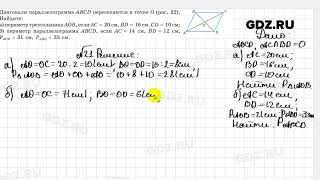 Диагонали параллелограмма ABCD пересекаются в точке O (рис. 22).
Найдите:
а) периметр треугольника AOB, если AC = 20 см, BD = 16 см, CD = 10 см;
б) периметр параллелограмма ABCD, если AC = 14 см, BD = 12 см,
P
= 21 см, P
= 22 см.
GDZ.RU
Решение:
а) AO=OC=20:2=10(см) BO=OD=16:2=8см,
= 10+8+10=28(см)
б) AO=OC=7(см), BO=OD=6(см),
Дано
ABCD, AC∩BD=O
а) AC=20см,
BD=16см,
CD=10см
Найти: P AOB
б) AC=14см,
BD=12см,
P AOB=21см,
Найти: P ABCD